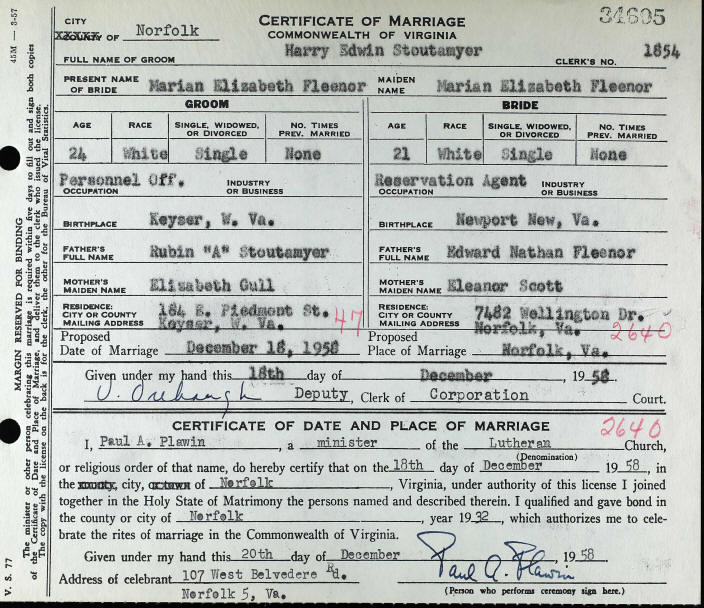 34605
CITY Norfolk CERTIFICATE OF MARRIAGE
XXXXX OF COMMONWEALTH OF VIRGINIA
FULL NAME OF GROOM Harry Edwin Stoutamyer CLERK'S NO. 1854
PRESENT NAME OF BRIDE Marian Elizabeth Fleenor MAIDEN NAME Marian Elizabeth Fleenor
GROOM BRIDE
AGE RACE SINGLE, WIDOWED, OR DIVORCED NO. TIMES PREV. MARRIED AGE RACE SINGLE, WIDOWED, OR DIVORCED NO. TIMES PREV. MARRIED
24 White Single None 21 White Single None
Personnel Off. Reservation Agent
OCCUPATION INDUSTRY OR BUSINESS OCCUPATION INDUSTRY OR BUSINESS
BIRTHPLACE Keyser, W. Va. BIRTHPLACE Newport New, Va.
FATHER'S FULL NAME Rubin "A" Stoutamyer FATHER'S FULL NAME Edward Nathan Fleenor
MOTHER'S MAIDEN NAME Elizabeth Gull MOTHER'S MAIDEN NAME Eleanor Scott
RESIDENCE: CITY OR COUNTY MAILING ADDRESS 184 E. Piedmont St. Keyser, W. Va. 47 RESIDENCE: CITY OR COUNTY MAILING ADDRESS 7482 Wellington Dr. Norfolk, Va. 2640
Proposed Date of Marriage December 18, 1958 Proposed Place of Marriage Norfolk, Va.
Given under my hand this 18th day of December, 1958.
Deputy, Clerk of Corporation Court.
CERTIFICATE OF DATE AND PLACE OF MARRIAGE 2640
I, Paul A. Plawin, a minister of the Lutheran Church,
(Denomination)
or religious order of that name, do hereby certify that on the 18th day of December 1958, in
the county, city, or town of Norfolk, Virginia, under authority of this license I joined
together in the Holy State of Matrimony the persons named and described therein. I qualified and gave bond
in the county or city of Norfolk, year 1932, which authorizes me to cele-
brate the rites of marriage in the Commonwealth of Virginia.
Given under my hand this 20th day of December, 1958
Address of celebrant 107 West Belvedere Rd. Paul A. Plawin
Norfolk 5, Va. (Person who performs ceremony sign here.)
45M — 3-57
MARGIN RESERVED FOR BINDING
The minister or other person celebrating this marriage is required within five days to fill out and sign both copies
of the Certificate of Date and Place of Marriage, and deliver them to the clerk who issued the license.
The copy with the license on the back is for the clerk, the other for the Bureau of Vital Statistics.
V. S. 77